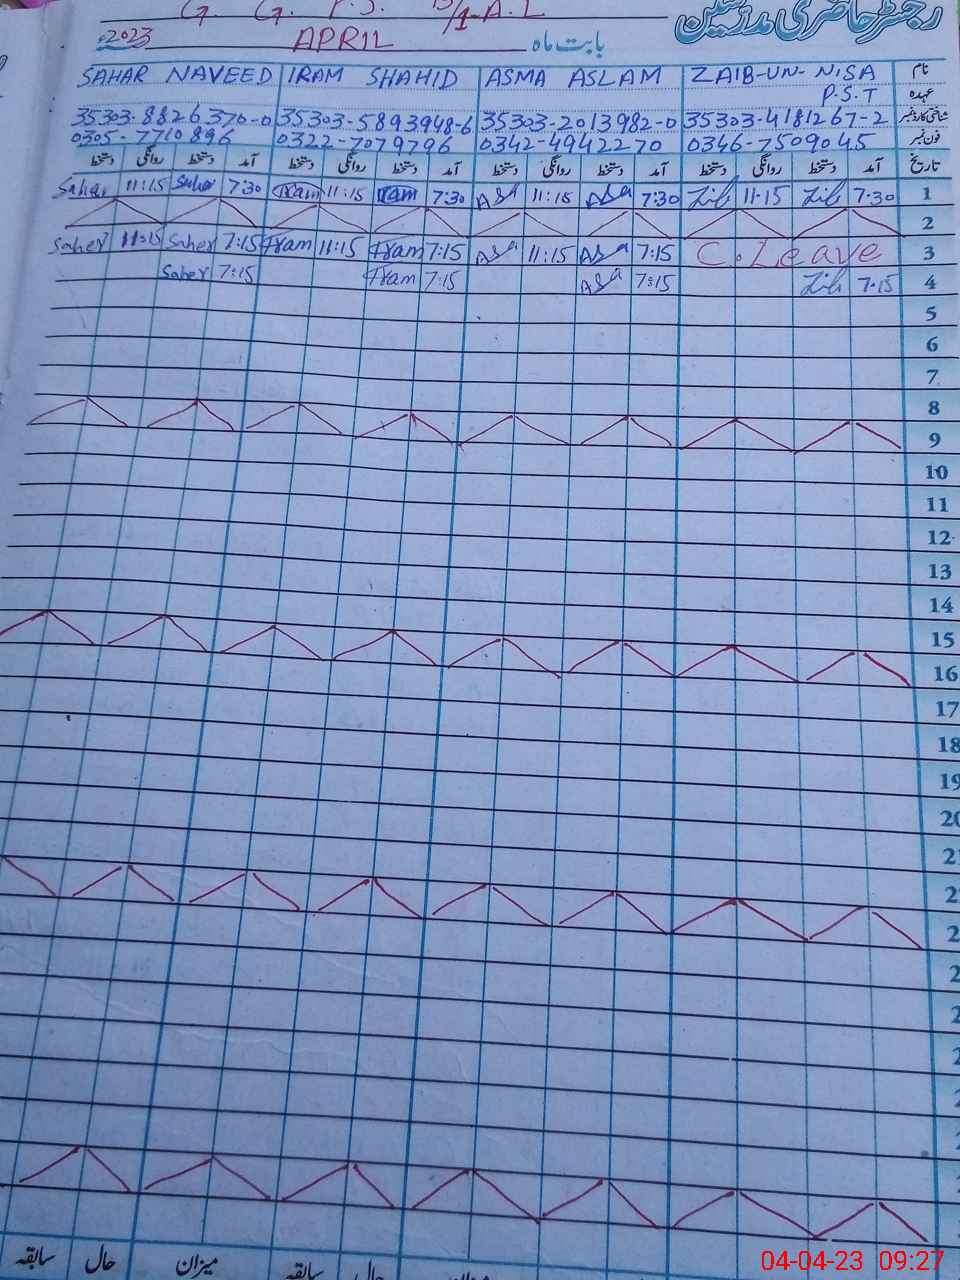 رجسٹر حاضری مدرسین
G. G. P.S. /1-A.L
2023 APRIL بابت ماہ
SAHAR NAVEED IRAM SHAHID ASMA ASLAM ZAIB-UN-NISA نام
P.S.T عہدہ
35303-8826370-0 35303-5893948-6 35303-2013982-0 35303-4181267-2 شناختی کارڈ نمبر
0305-7710896 0322-7079796 0342-4942270 0346-7509045 فون نمبر
دستخط روانگی دستخط آمد دستخط روانگی دستخط آمد دستخط روانگی دستخط آمد دستخط روانگی دستخط آمد تاریخ
Sahar 11:15 Sahar 7:30 Iram 11:15 Iram 7:30 ASA 11:15 ASA 7:30 11:15 7:30 1
2
Saher 11:15 Saher 7:15 Iram 11:15 Iram 7:15 ASA 11:15 ASA 7:15 C. Leave 3
Saher 7:15 Iram 7:15 ASA 7:15 7:15 4
5
6
7
8
9
10
11
12
13
14
15
16
17
18
19
20
سابقہ حال میزان سابقہ حال میزان
04-04-23 09:27